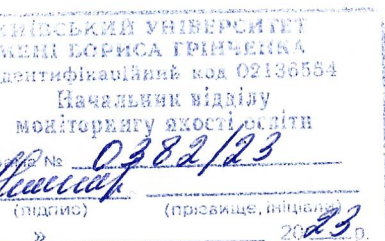 КИЇВСЬКИЙ УНІВЕРСИТЕТ
МЕНІ БОРИСА ГРІНЧЕНКА
дентифікаційний код 02136554
Начальник відділу
моніторингу якості освіти
№ 0382/23
(підпис) (прізвище, ініціали)
» 2023 р.